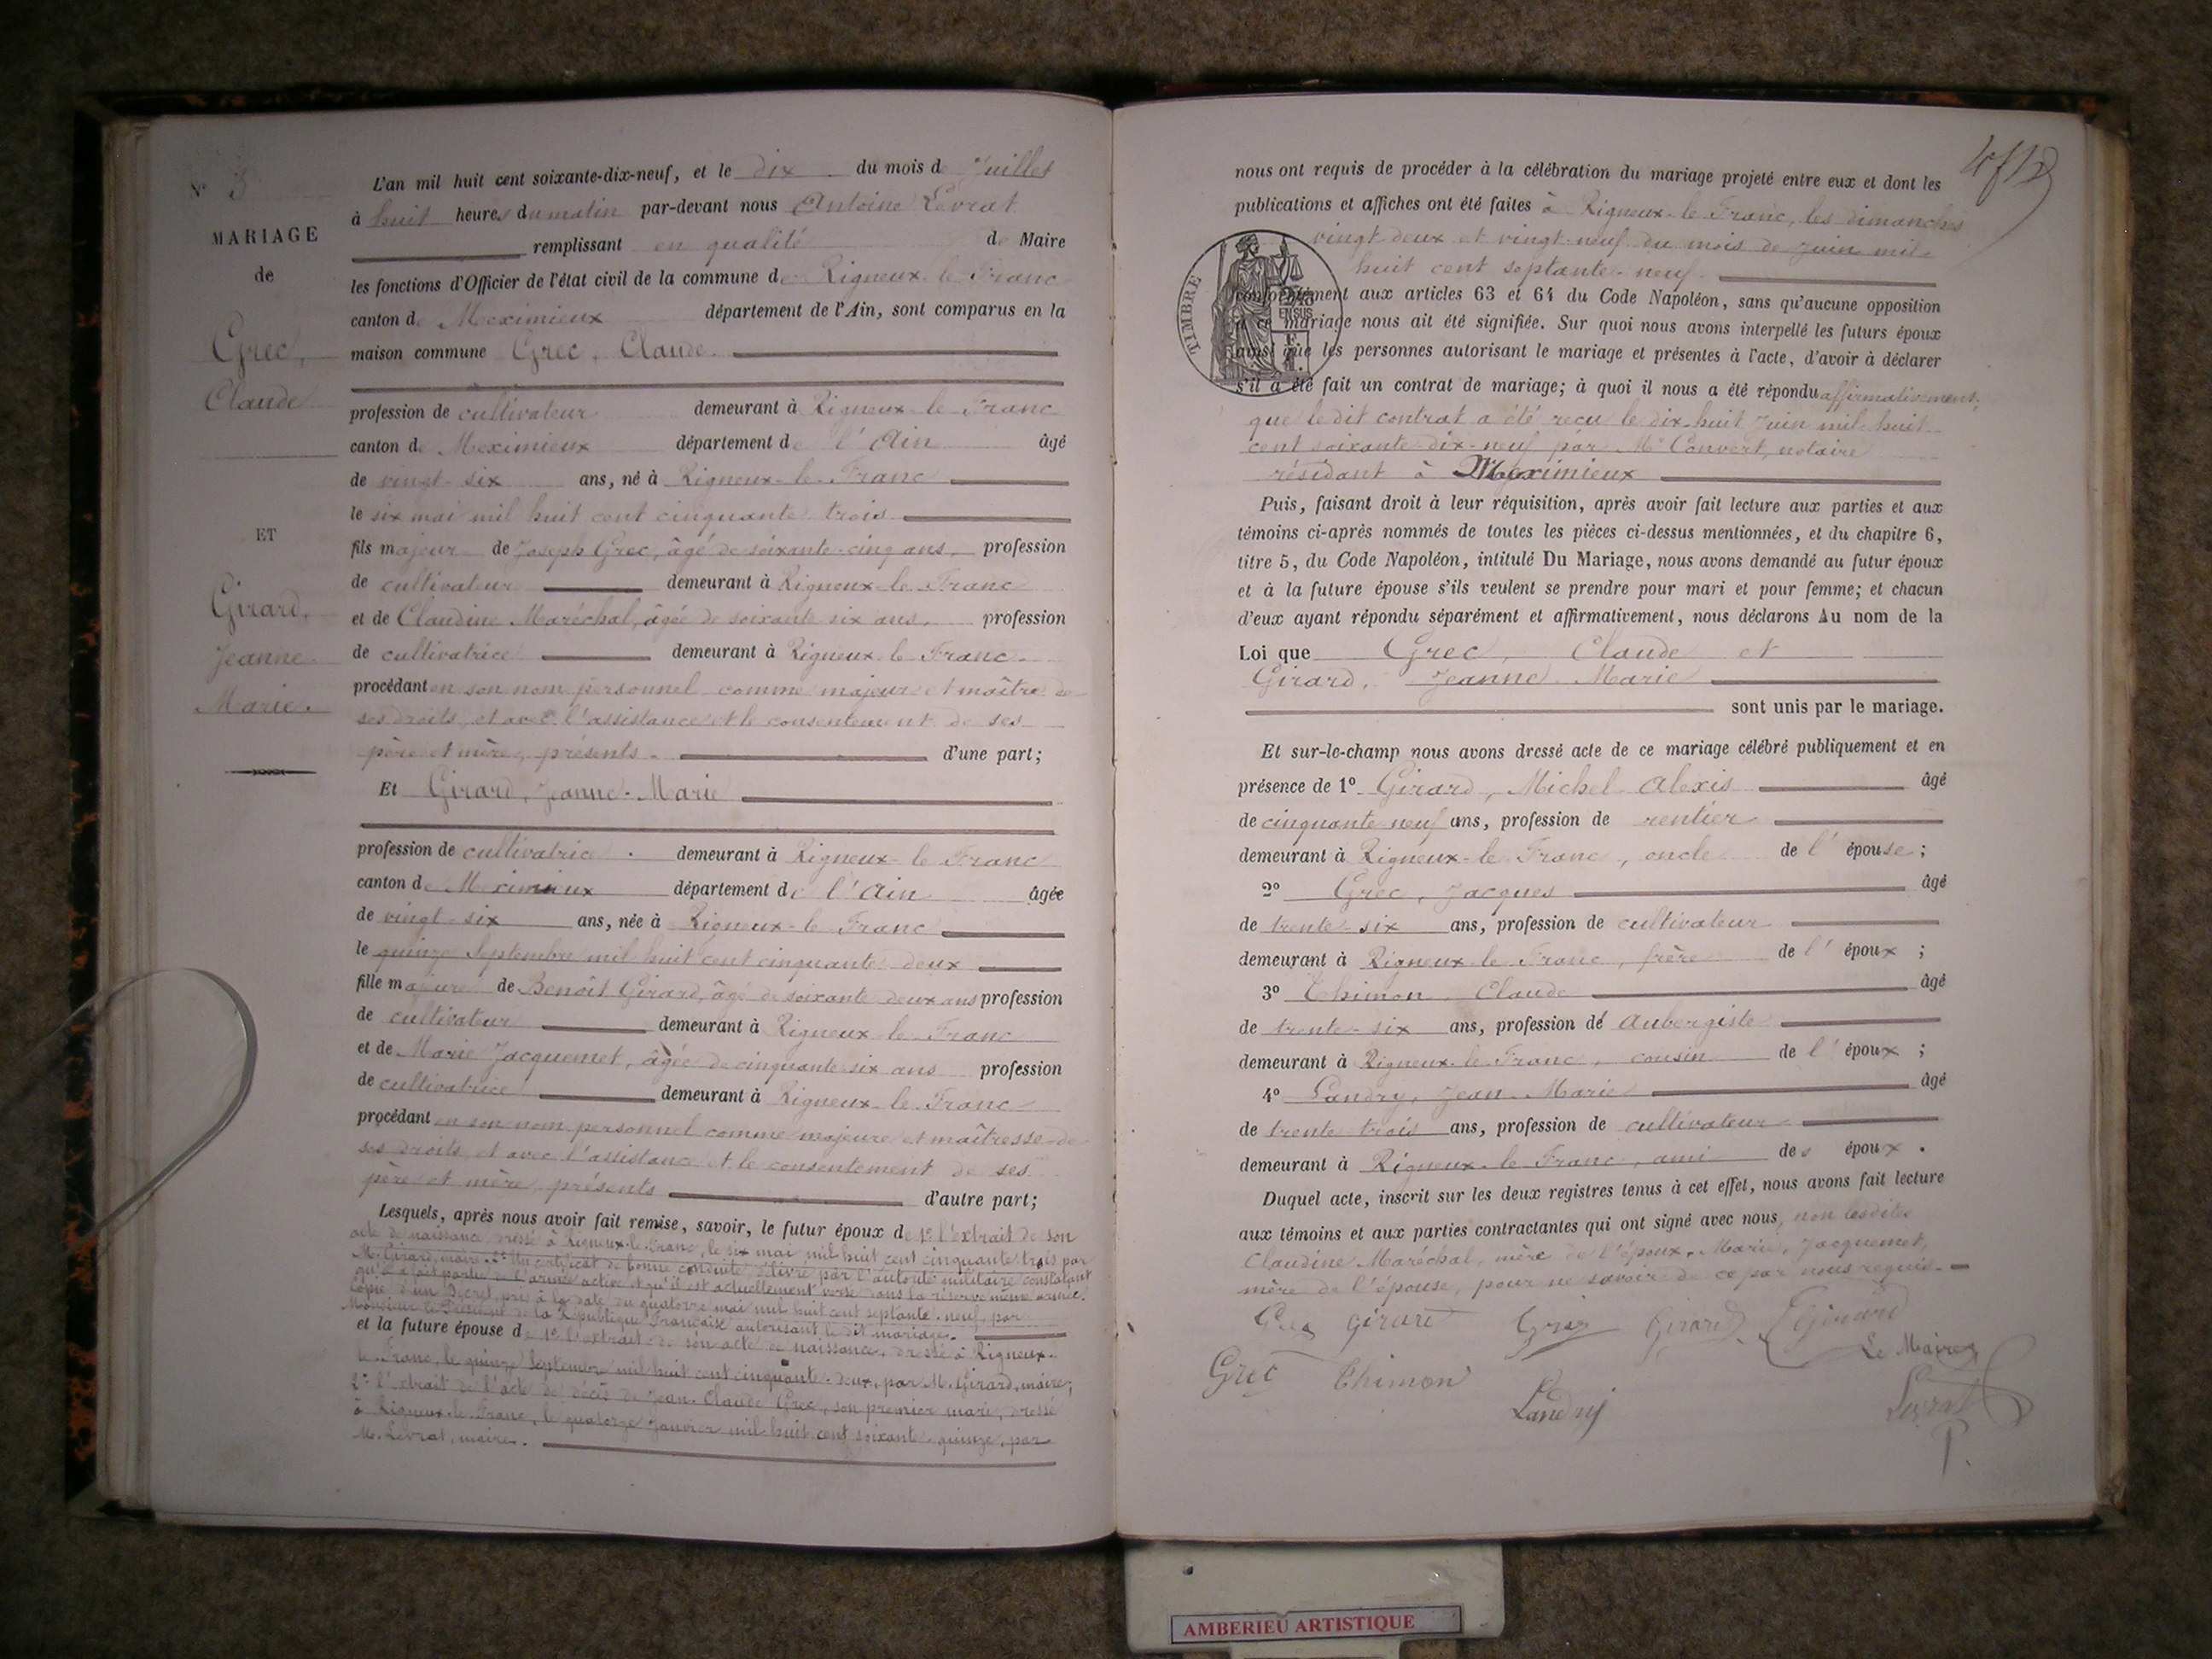 N° 3
MARIAGE
de
Grec,
Claude
ET
Girard,
Jeanne
Marie.
L'an mil huit cent soixante-dix-neuf, et le dix du mois de Juillet
à huit heures du matin par-devant nous Antoine Levrat
remplissant en qualité de Maire
les fonctions d'Officier de l'état civil de la commune de Rigneux-le-Franc
canton de Meximieux département de l'Ain, sont comparus en la
maison commune Grec, Claude
profession de cultivateur demeurant à Rigneux-le-Franc
canton de Meximieux département de l'Ain âgé
de vingt-six ans, né à Rigneux-le-Franc
le six mai mil huit cent cinquante trois
fils majeur de Joseph Grec, âgé de soixante-cinq ans, profession
de cultivateur demeurant à Rigneux-le-Franc
et de Claudine Maréchal, âgée de soixante six ans, profession
de cultivatrice demeurant à Rigneux-le-Franc
procédant en son nom personnel comme majeur et maître de
ses droits, et avec l'assistance et le consentement de ses
père et mère, présents. d'une part;
Et Girard, Jeanne-Marie
profession de cultivatrice demeurant à Rigneux-le-Franc
canton de Meximieux département de l'Ain âgée
de vingt-six ans, née à Rigneux-le-Franc
le quinze Septembre mil huit cent cinquante-deux
fille majeure de Benoît Girard, âgé de soixante deux ans profession
de cultivateur demeurant à Rigneux-le-Franc
et de Marie Jacquemet, âgée de cinquante-six ans profession
de cultivatrice demeurant à Rigneux-le-Franc
procédant en son nom personnel comme majeure et maîtresse de
ses droits, et avec l'assistance et le consentement de ses
père et mère, présents d'autre part;
Lesquels, après nous avoir fait remise, savoir, le futur époux de 1° l'extrait de son
acte de naissance, dressé à Rigneux-le-Franc, le six mai mil huit cent cinquante trois par
M. Girard, maire. 2° Un certificat de bonne conduite, délivré par l'autorité militaire constatant
qu'il a fait partie de l'armée active et qu'il est actuellement versé dans la réserve même armée.
copie d'un Décret pris à la date du quatorze mai mil huit cent septante-neuf, par
Monsieur le Président de la République Française autorisant le dit mariage.
et la future épouse de 1° l'extrait de son acte de naissance, dressé à Rigneux-
le-Franc, le quinze Septembre mil huit cent cinquante-deux, par M. Girard, maire;
2° l'extrait de l'acte de décès de Jean-Claude Grec, son premier mari, dressé
à Rigneux-le-Franc, le quatorze Janvier mil huit cent soixante-quinze, par
M. Levrat, maire.
nous ont requis de procéder à la célébration du mariage projeté entre eux et dont les
publications et affiches ont été faites à Rigneux-le-Franc, les dimanches
vingt-deux et vingt-neuf du mois de juin mil
huit cent septante-neuf
TIMBRE
conformément aux articles 63 et 64 du Code Napoléon, sans qu'aucune opposition
à ce mariage nous ait été signifiée. Sur quoi nous avons interpellé les futurs époux
ainsi que les personnes autorisant le mariage et présentes à l'acte, d'avoir à déclarer
s'il a été fait un contrat de mariage; à quoi il nous a été répondu affirmativement,
que le dit contrat a été reçu le dix-huit Juin mil huit
cent soixante-dix-neuf par Me Convert, notaire
résidant à Meximieux
Puis, faisant droit à leur réquisition, après avoir fait lecture aux parties et aux
témoins ci-après nommés de toutes les pièces ci-dessus mentionnées, et du chapitre 6,
titre 5, du Code Napoléon, intitulé Du Mariage, nous avons demandé au futur époux
et à la future épouse s'ils veulent se prendre pour mari et pour femme; et chacun
d'eux ayant répondu séparément et affirmativement, nous déclarons Au nom de la
Loi que Grec, Claude et
Girard, Jeanne-Marie
sont unis par le mariage.
Et sur-le-champ nous avons dressé acte de ce mariage célébré publiquement et en
présence de 1° Girard, Michel Alexis âgé
de cinquante neuf ans, profession de rentier
demeurant à Rigneux-le-Franc, oncle de l'épouse;
2° Grec, Jacques âgé
de trente-six ans, profession de cultivateur
demeurant à Rigneux-le-Franc, frère de l'époux;
3° Thimon, Claude âgé
de trente-six ans, profession de Aubergiste
demeurant à Rigneux-le-Franc, cousin de l'époux;
4° Landry, Jean-Marie âgé
de trente trois ans, profession de cultivateur
demeurant à Rigneux-le-Franc, ami des époux.
Duquel acte, inscrit sur les deux registres tenus à cet effet, nous avons fait lecture
aux témoins et aux parties contractantes qui ont signé avec nous, non lesdites
Claudine Maréchal, mère de l'époux, Marie Jacquemet,
mère de l'épouse, pour ne savoir de ce par nous requis.
Grec girard Grec Girard Girard
Le Maire
Grec Thimon Landry Levrat
AMBERIEU ARTISTIQUE